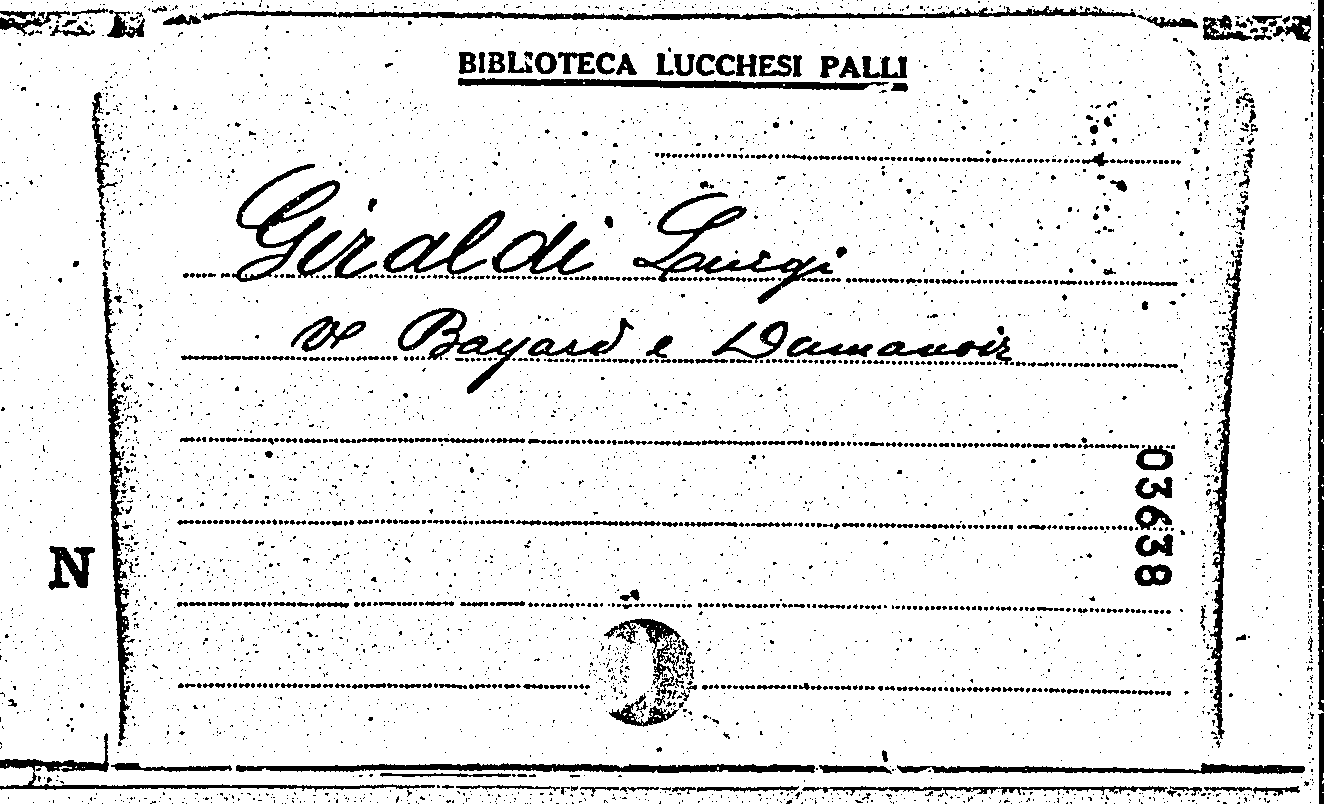 BIBLIOTECA LUCCHESI PALLI
Giraldi Luigi
ve Bayard e Dumanoir
03638
N